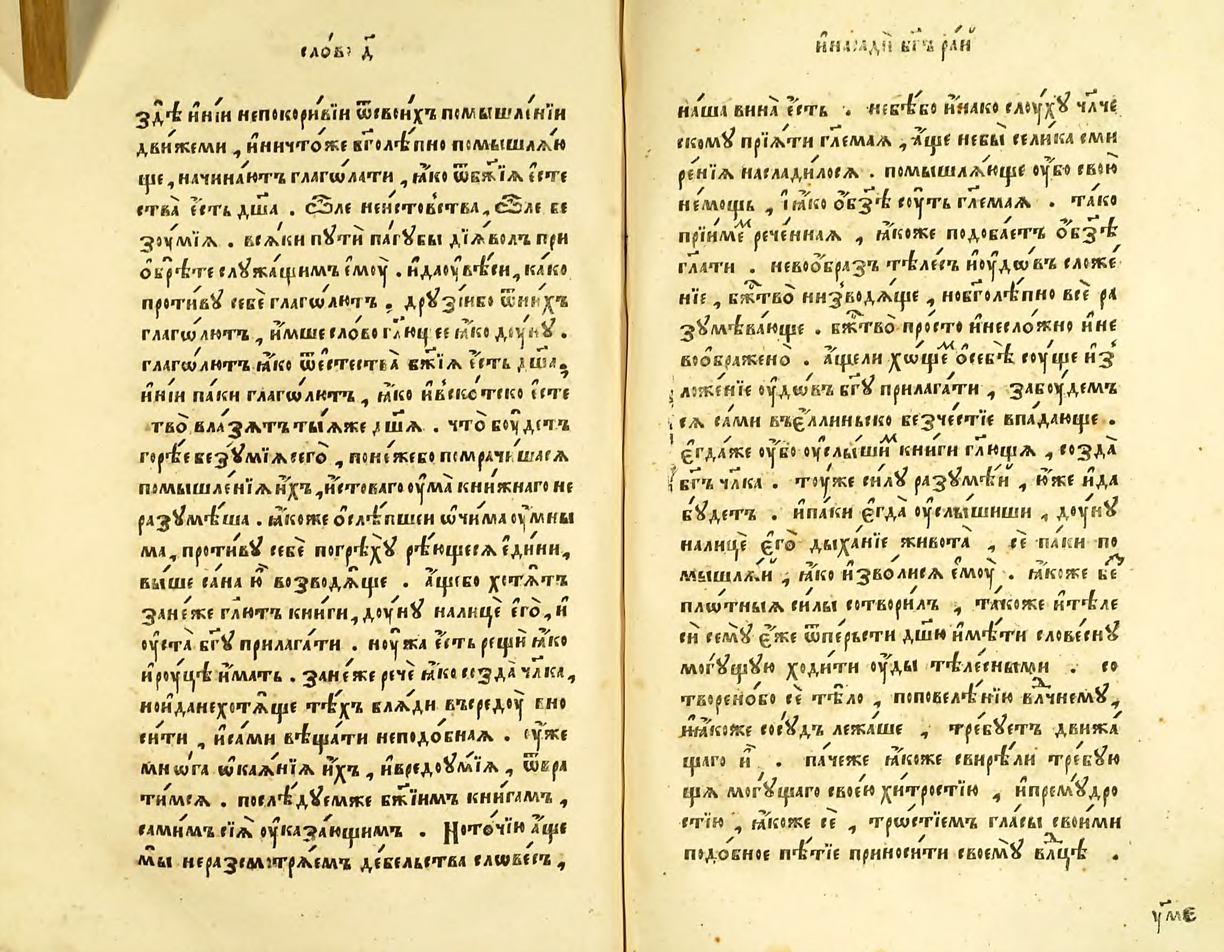 сло́во д҃
здѣ̀ и҆ні́и непокори́вїи ѿсвои́хъ помышле́нїи
дви́жеми , и҆ничто́же бг҃олѣ́пно помышлѧ́ю
ще , начина́ютъ глаго́лати , ꙗ҆́ко ѿбж҃їѧ є҆сте
ства̀ є҆́сть дш҃а̀ . Ѽле неи́стовства , Ѽле бе
зоу́мїѧ . всѧ́ки пꙋтѝ па́гꙋбы дїѧ́волъ при
ѻ҆брѣ́те слꙋжа́щимъ є҆моу̀ . и҆даоувѣ́си , ка́ко
проти́вꙋ себѐ глаго́лютъ . дрꙋзі́ибо ѿни́хъ
глаго́лютъ , и҆́мше сло́во гл҃ющее ꙗ҆́ко доу́нꙋ .
глаго́лютъ ꙗ҆́ко ѿестества̀ бж҃їѧ є҆́сть дш҃а̀ ,
и҆ні́и па́ки глаго́лютъ , ꙗ҆́ко и҆вско́тско є҆сте
тво̀ вла́зѧтъ тыѧже дш҃ѧ . что̀ боу́детъ
го́рѣе безꙋ́мїѧ сего̀ , поне́жебо помрачи́шасѧ
помышле́нїѧ и҆́хъ , и҆́стоваго оу҆ма̀ кни́жнаго не
разꙋмѣ́ша . ꙗ҆́коже ѻ҆слѣ́пшеи ѡ҆чи́ма оу҆́мны
ма , проти́вꙋ себѐ погрѣ́хꙋ рѣ́ющесѧ є҆ди́ни ,
вы́ше са́на ю҆̀ возводѧ́ще . а҆́щебо хотѧ́тъ
зане́же гл҃ютъ кни́ги , доу́нꙋ налицѐ є҆го̀ , и҆
оу҆ста̀ бг҃ꙋ прилага́ти . ноу́жа є҆́сть рещѝ ꙗ҆́ко
и҆роуцѣ̀ и҆́мать . зане́же речѐ ꙗ҆́ко созда̀ чл҃ка ,
нои҆данехотѧ́ще тѣ́хъ блѧ́ди въсредоу̀ вно
си́ти , и҆са́ми вѣща́ти неподо́бнаѧ . оу҆́же
мно́га ѡ҆каѧ́нїѧ и҆́хъ , и҆вредоу́мїѧ , ѿвра
ти́мсѧ . послѣ́дꙋемже бж҃їимъ кни́гамъ ,
сами́мъ сїѧ̀ оу҆каза́ющимъ . Ното́чїю а҆́ще
мы̀ неразсмотрѧ́емъ де́бельства слове́съ ,
и҆насадѝ бг҃ъ ра́й
на́ша вина̀ є҆́сть . небѣ́бо и҆на́ко слоу́хꙋ чл҃че
скомꙋ прїѧ́ти гл҃емаѧ , а҆́ще небы̀ селика сми
ре́нїѧ наслади́лосѧ . помышлѧ́юще оу҆́бо свою̀
не́мощь , і҆ꙗ҆́ко ѻ҆бз҃ѣ соу́ть гл҃емаѧ . та́ко
прїи́меⷨ рече́ннаѧ , ꙗ҆́коже подоба́етъ ѻ҆бз҃ѣ
гл҃ати . невоо́бразъ тѣле́съ и҆оу́довъ сложе
нїе , бж҃тво̀ низво́дѧще , нобг҃олѣ́пно всѐ ра
зꙋмѣва́юще . бж҃тво̀ про́сто и҆несло́жно и҆не
воѻ҆бра́жено . а҆́щели хо́щеⷨ ѻ҆себѣ̀ соу́ще и҆з
ложе́нїе оу҆́довъ бг҃ꙋ прилага́ти , забоу́демъ
сѧ са́ми въе́ллиньско безче́стїе впа́дающе .
є҆гда́же оу҆́бо оу҆слы́шиⷨ кни́ги гл҃ющѧ , созда̀
бг҃ъ чл҃ка . тоу́же си́лꙋ разꙋмѣ́й , ю҆́же и҆да
бꙋ́детъ . и҆па́ки є҆гда̀ оу҆слы́шиши , доу́нꙋ
налицѐ є҆го̀ дыха́нїе живота̀ , сѐ па́ки по
мышлѧ́й , ꙗ҆́ко и҆зво́лисѧ є҆моу̀ . ꙗ҆́коже беⷥ
пло́тныѧ си́лы сотвори́лъ , та́коже и҆тѣ́ле
си́ семꙋ̀ є҆́же ѿпе́рьсти дш҃ю и҆мѣ́ти слове́снꙋ
могꙋ́щꙋю ходи́ти оу҆́ды тѣле́сными . со
творено́бо сѐ тѣ́ло , поповелѣ́нїю влⷣчнемꙋ ,
и҆ꙗ҆́коже сосꙋ́дъ лежа́ше , тре́бꙋетъ движа́
щаго и҆̀ . па́чеже ꙗ҆́коже свирѣ́ли тре́бꙋю
щѧ могꙋ́щаго свое́ю хи́тростїю , и҆премꙋ́дро
стїю , ꙗ҆́коже сѐ , тро́стїемъ гла́сы свои́ми
подо́бное пѣ́тїе приноси́ти своемꙋ̀ влⷣцѣ .